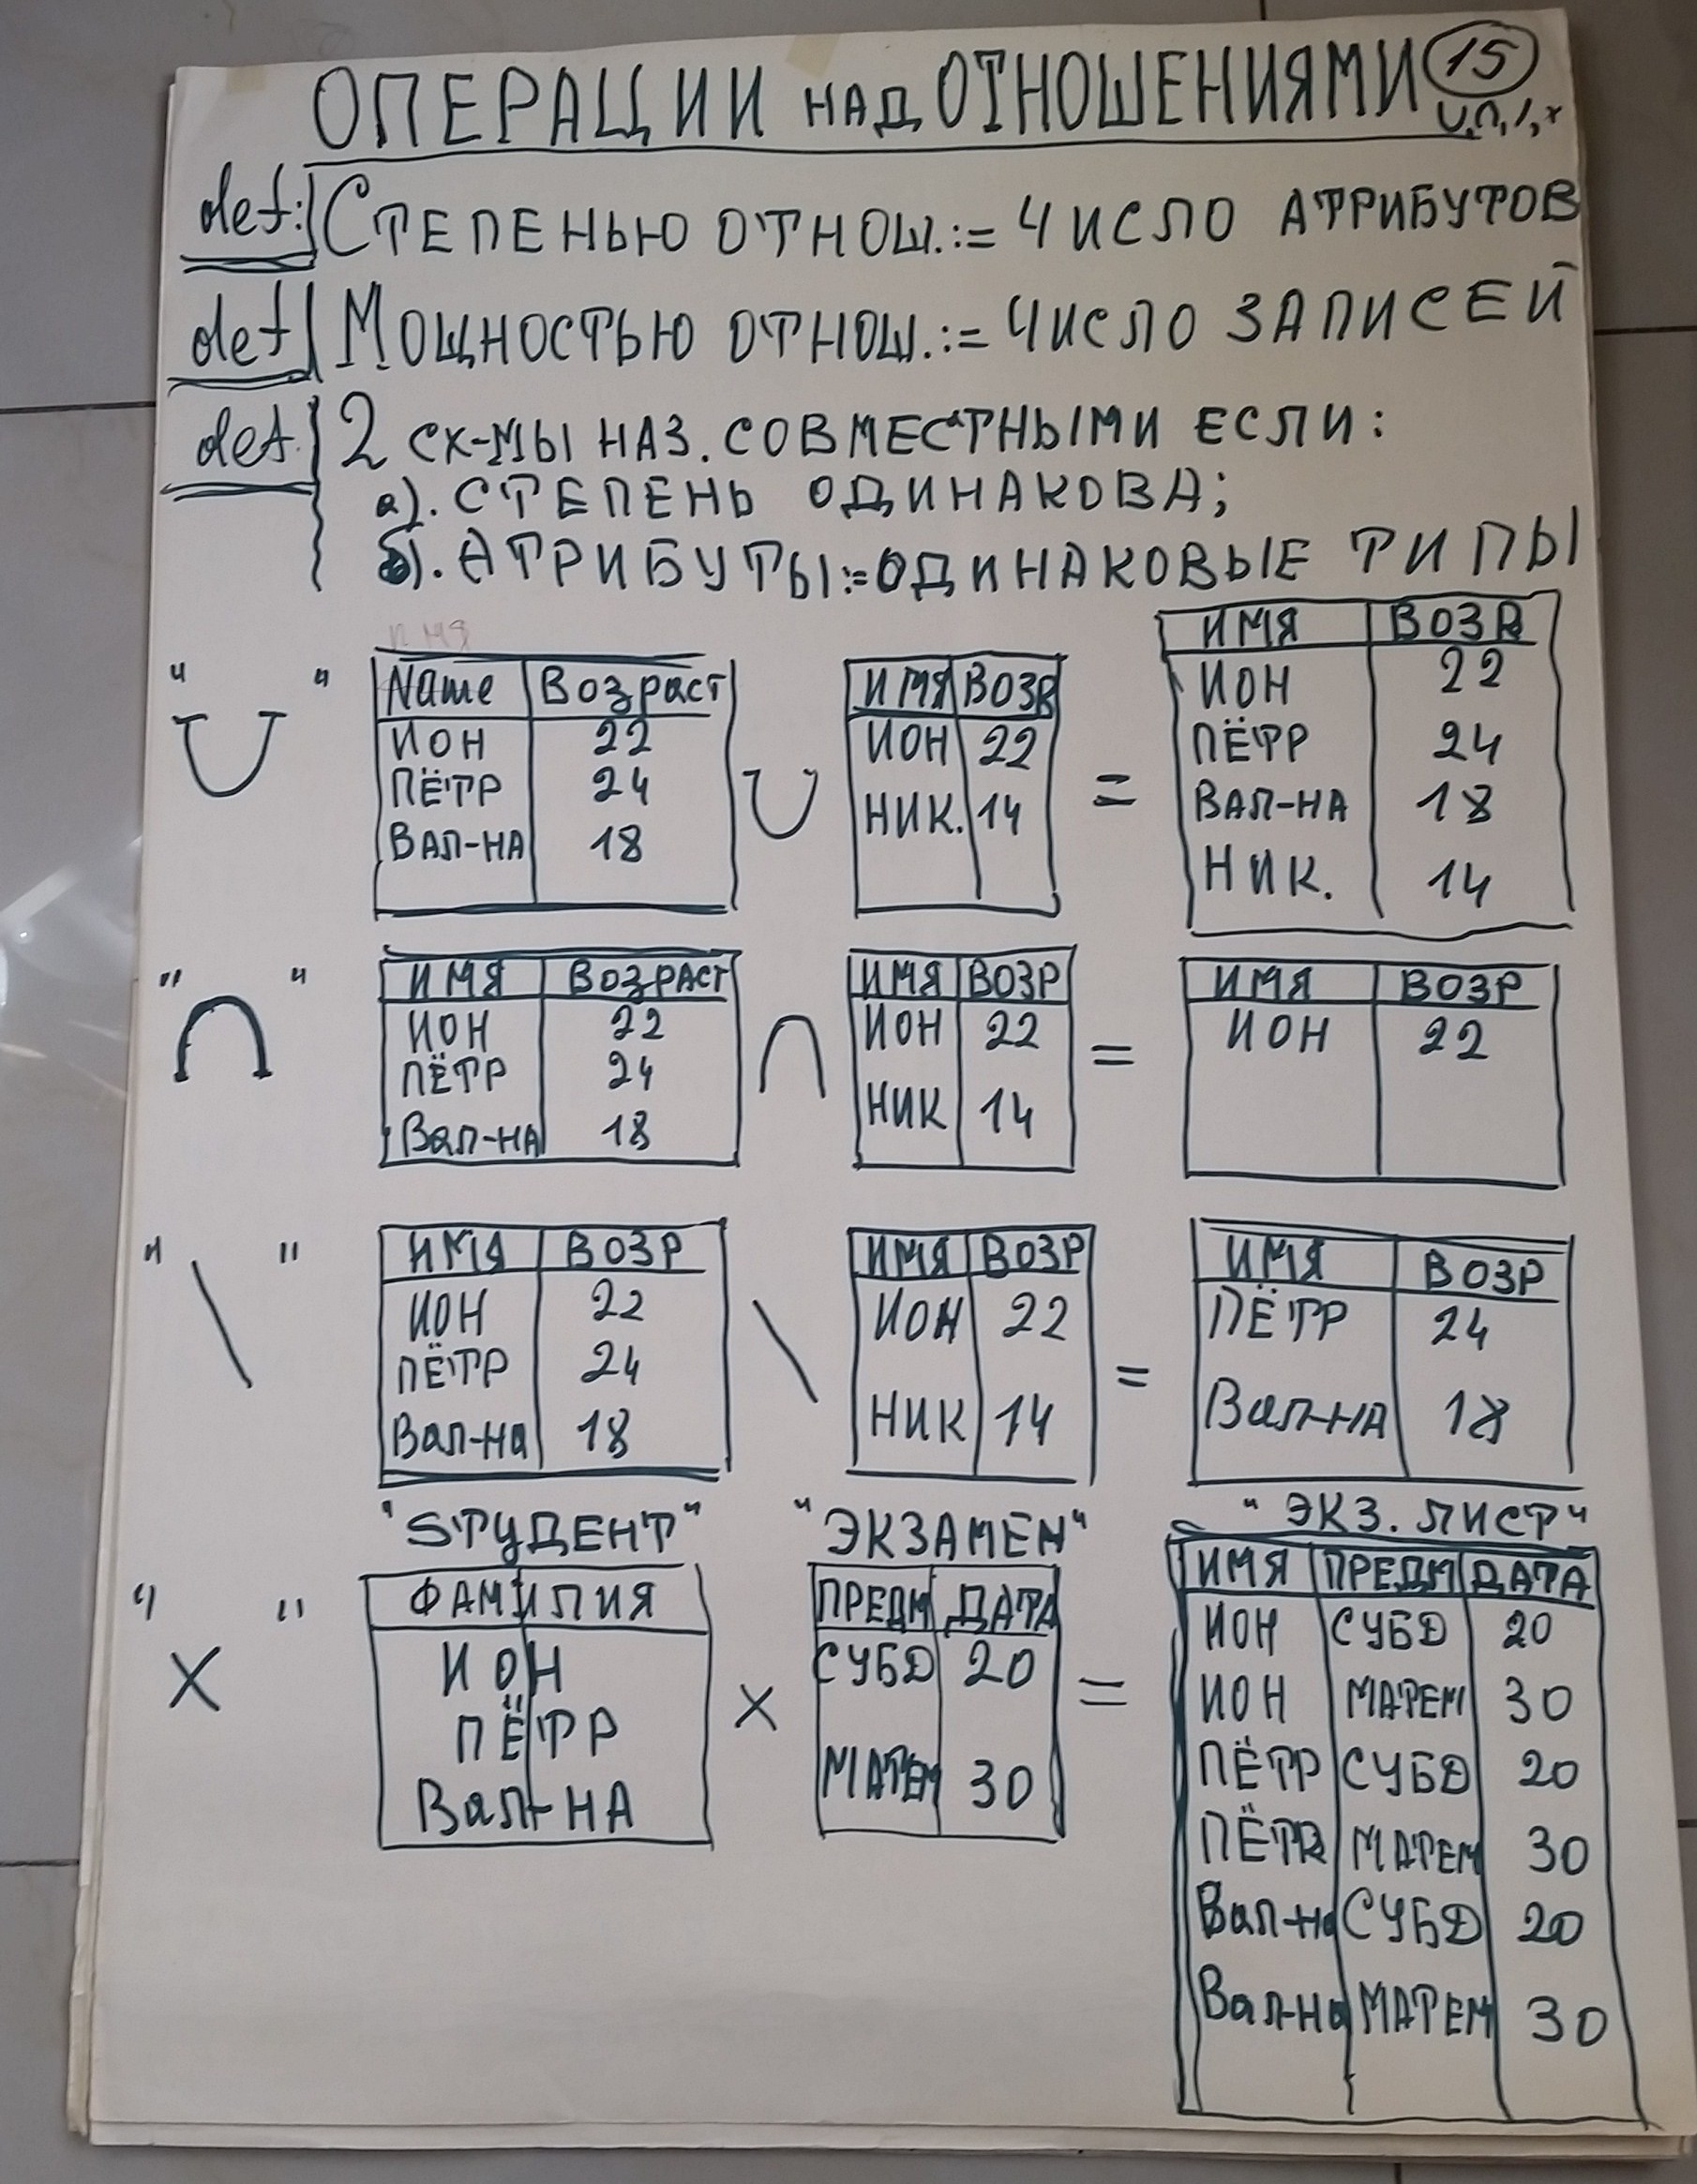 ОПЕРАЦИИ НАД ОТНОШЕНИЯМИ 15
∪,∩,\,×
def: СТЕПЕНЬЮ ОТНОШ.:= ЧИСЛО АТРИБУТОВ
def МОЩНОСТЬЮ ОТНОШ.:= ЧИСЛО ЗАПИСЕЙ
def. 2 СХ-МЫ НАЗ. СОВМЕСТНЫМИ ЕСЛИ:
а). СТЕПЕНЬ ОДИНАКОВА;
б). АТРИБУТЫ:=ОДИНАКОВЫЕ ТИПЫ
имя
"∪"
Name Возраст
ИОН 22
ПЁТР 24
ВАЛ-НА 18
∪
ИМЯ ВОЗР
ИОН 22
НИК. 14
=
ИМЯ ВОЗР
ИОН 22
ПЁТР 24
ВАЛ-НА 18
НИК. 14
"∩"
ИМЯ ВОЗРАСТ
ИОН 22
ПЁТР 24
Вал-НА 18
∩
ИМЯ ВОЗР
ИОН 22
НИК 14
=
ИМЯ ВОЗР
ИОН 22
"\"
ИМЯ ВОЗР
ИОН 22
ПЁТР 24
Вал-на 18
\
ИМЯ ВОЗР
ИОН 22
НИК 14
=
ИМЯ ВОЗР
ПЁТР 24
Вал-НА 18
"×"
"SТУДЕНТ"
ФАМИЛИЯ
ИОН
ПЁТР
Вал-НА
×
"ЭКЗАМЕН"
ПРЕДМ ДАТА
СУБД 20
МАТЕМ 30
=
"ЭКЗ. ЛИСТ"
ИМЯ ПРЕДМ ДАТА
ИОН СУБД 20
ИОН МАТЕМ 30
ПЁТР СУБД 20
ПЁТР МАТЕМ 30
Вал-на СУБД 20
Вал-на МАТЕМ 30